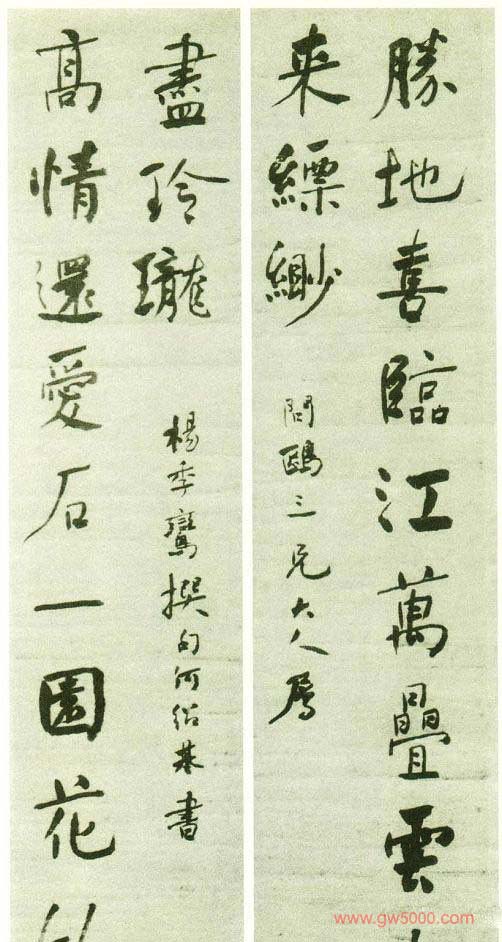 勝地喜臨江萬疊雲
来縹緲
問鷗三兄大人屬
高情還愛石一園花
盡玲瓏
楊季鸞撰句何紹基書
www.gw5000.com